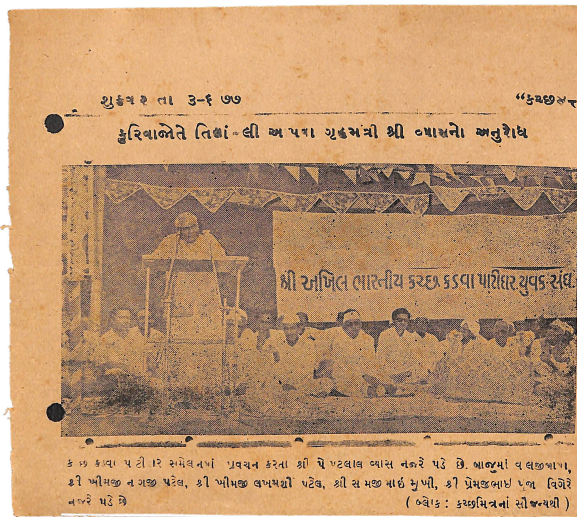 શુક્રવાર તા ૩-૬ ૭૭
કુરિવાજોને તિલાં લી આપવા ગૃહમંત્રી શ્રી વ્યાસનો અનુરોધ
શ્રી અખિલ ભારતીય કચ્છ કડવા પાટીદાર યુવક સંઘ
કચ્છ કડવા પાટીદાર સંમેલનમાં પ્રવચન કરતા શ્રી પોપટલાલ વ્યાસ નજરે પડે છે. બાજુમાં વાલજીબાપા,
શ્રી ખીમજી નાગજી પટેલ, શ્રી ખીમજી લખમશી પટેલ, શ્રી સામજીભાઇ મુખી, શ્રી પ્રેમજીભાઇ પુંજા વિગેરે
નજરે પડે છે ( બ્લોક : કચ્છમિત્રનાં સૌજન્યથી )